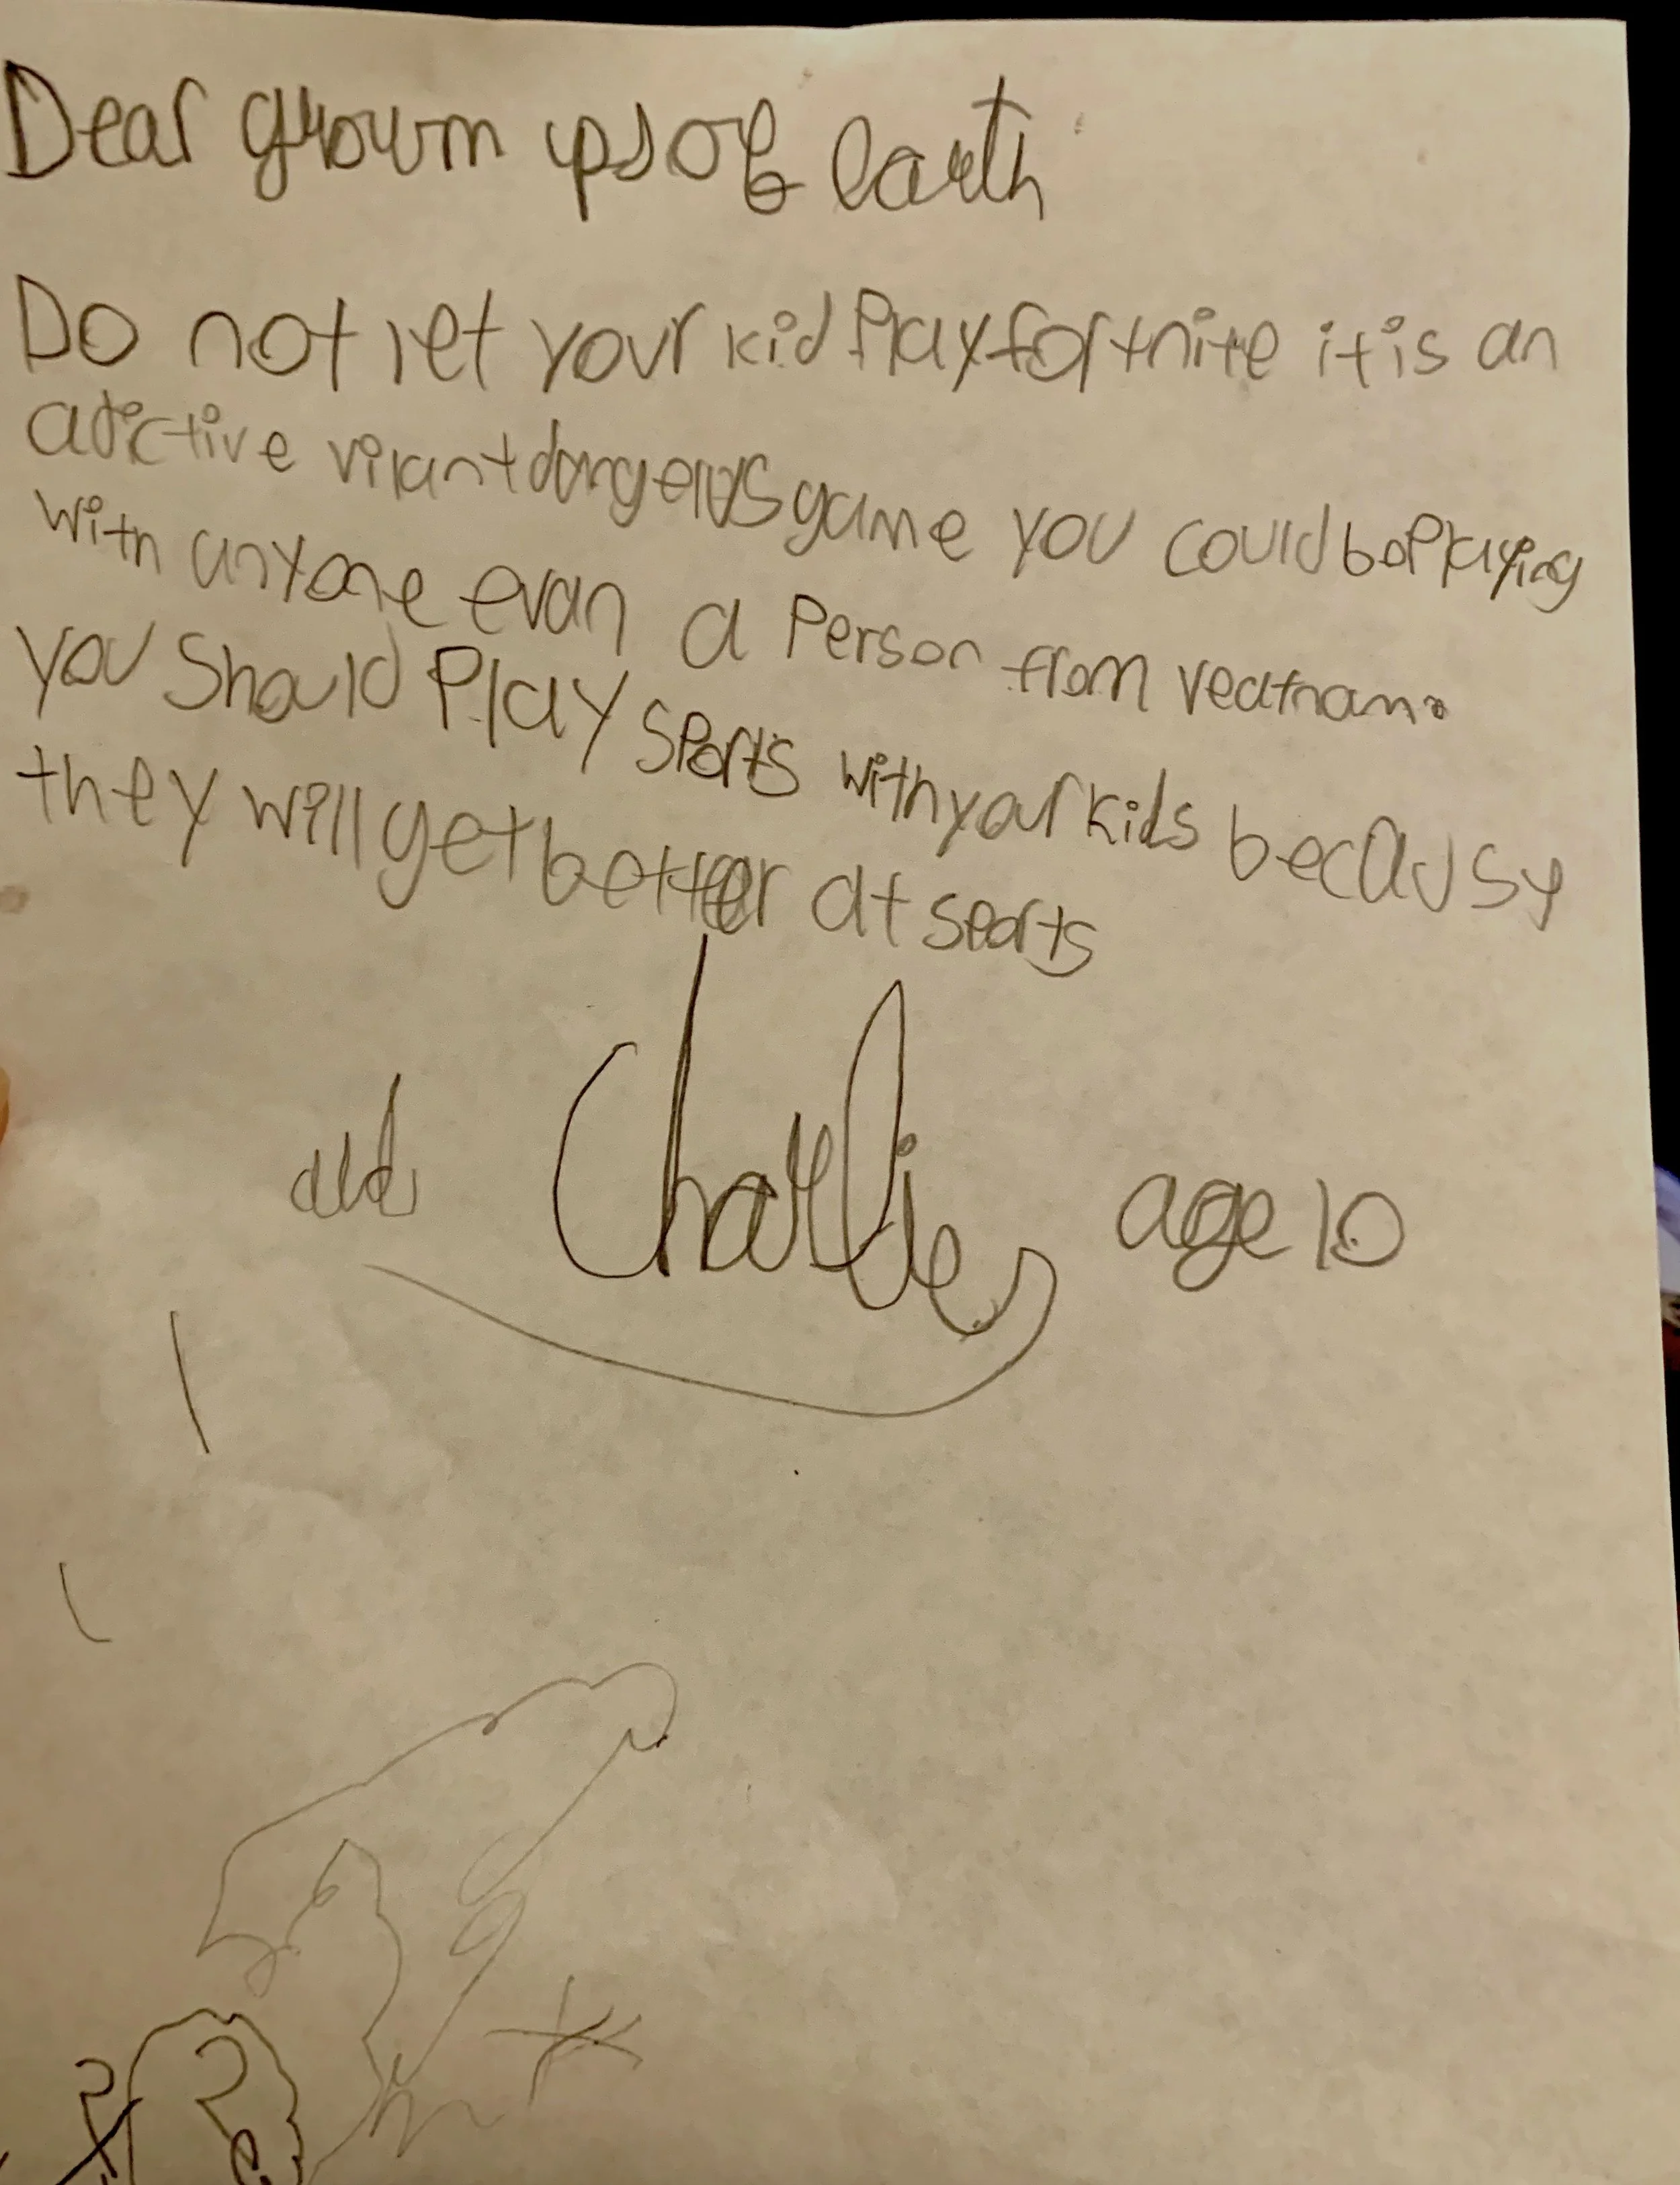 Dear grown ups of earth
Do not let your kid Play fortnite it is an
adictive vilant dangerus game you could be Playing
with anyone evan a Person from veatnam.
you Should Play sports with your kids because
they will get better at sports
Charlie age 10